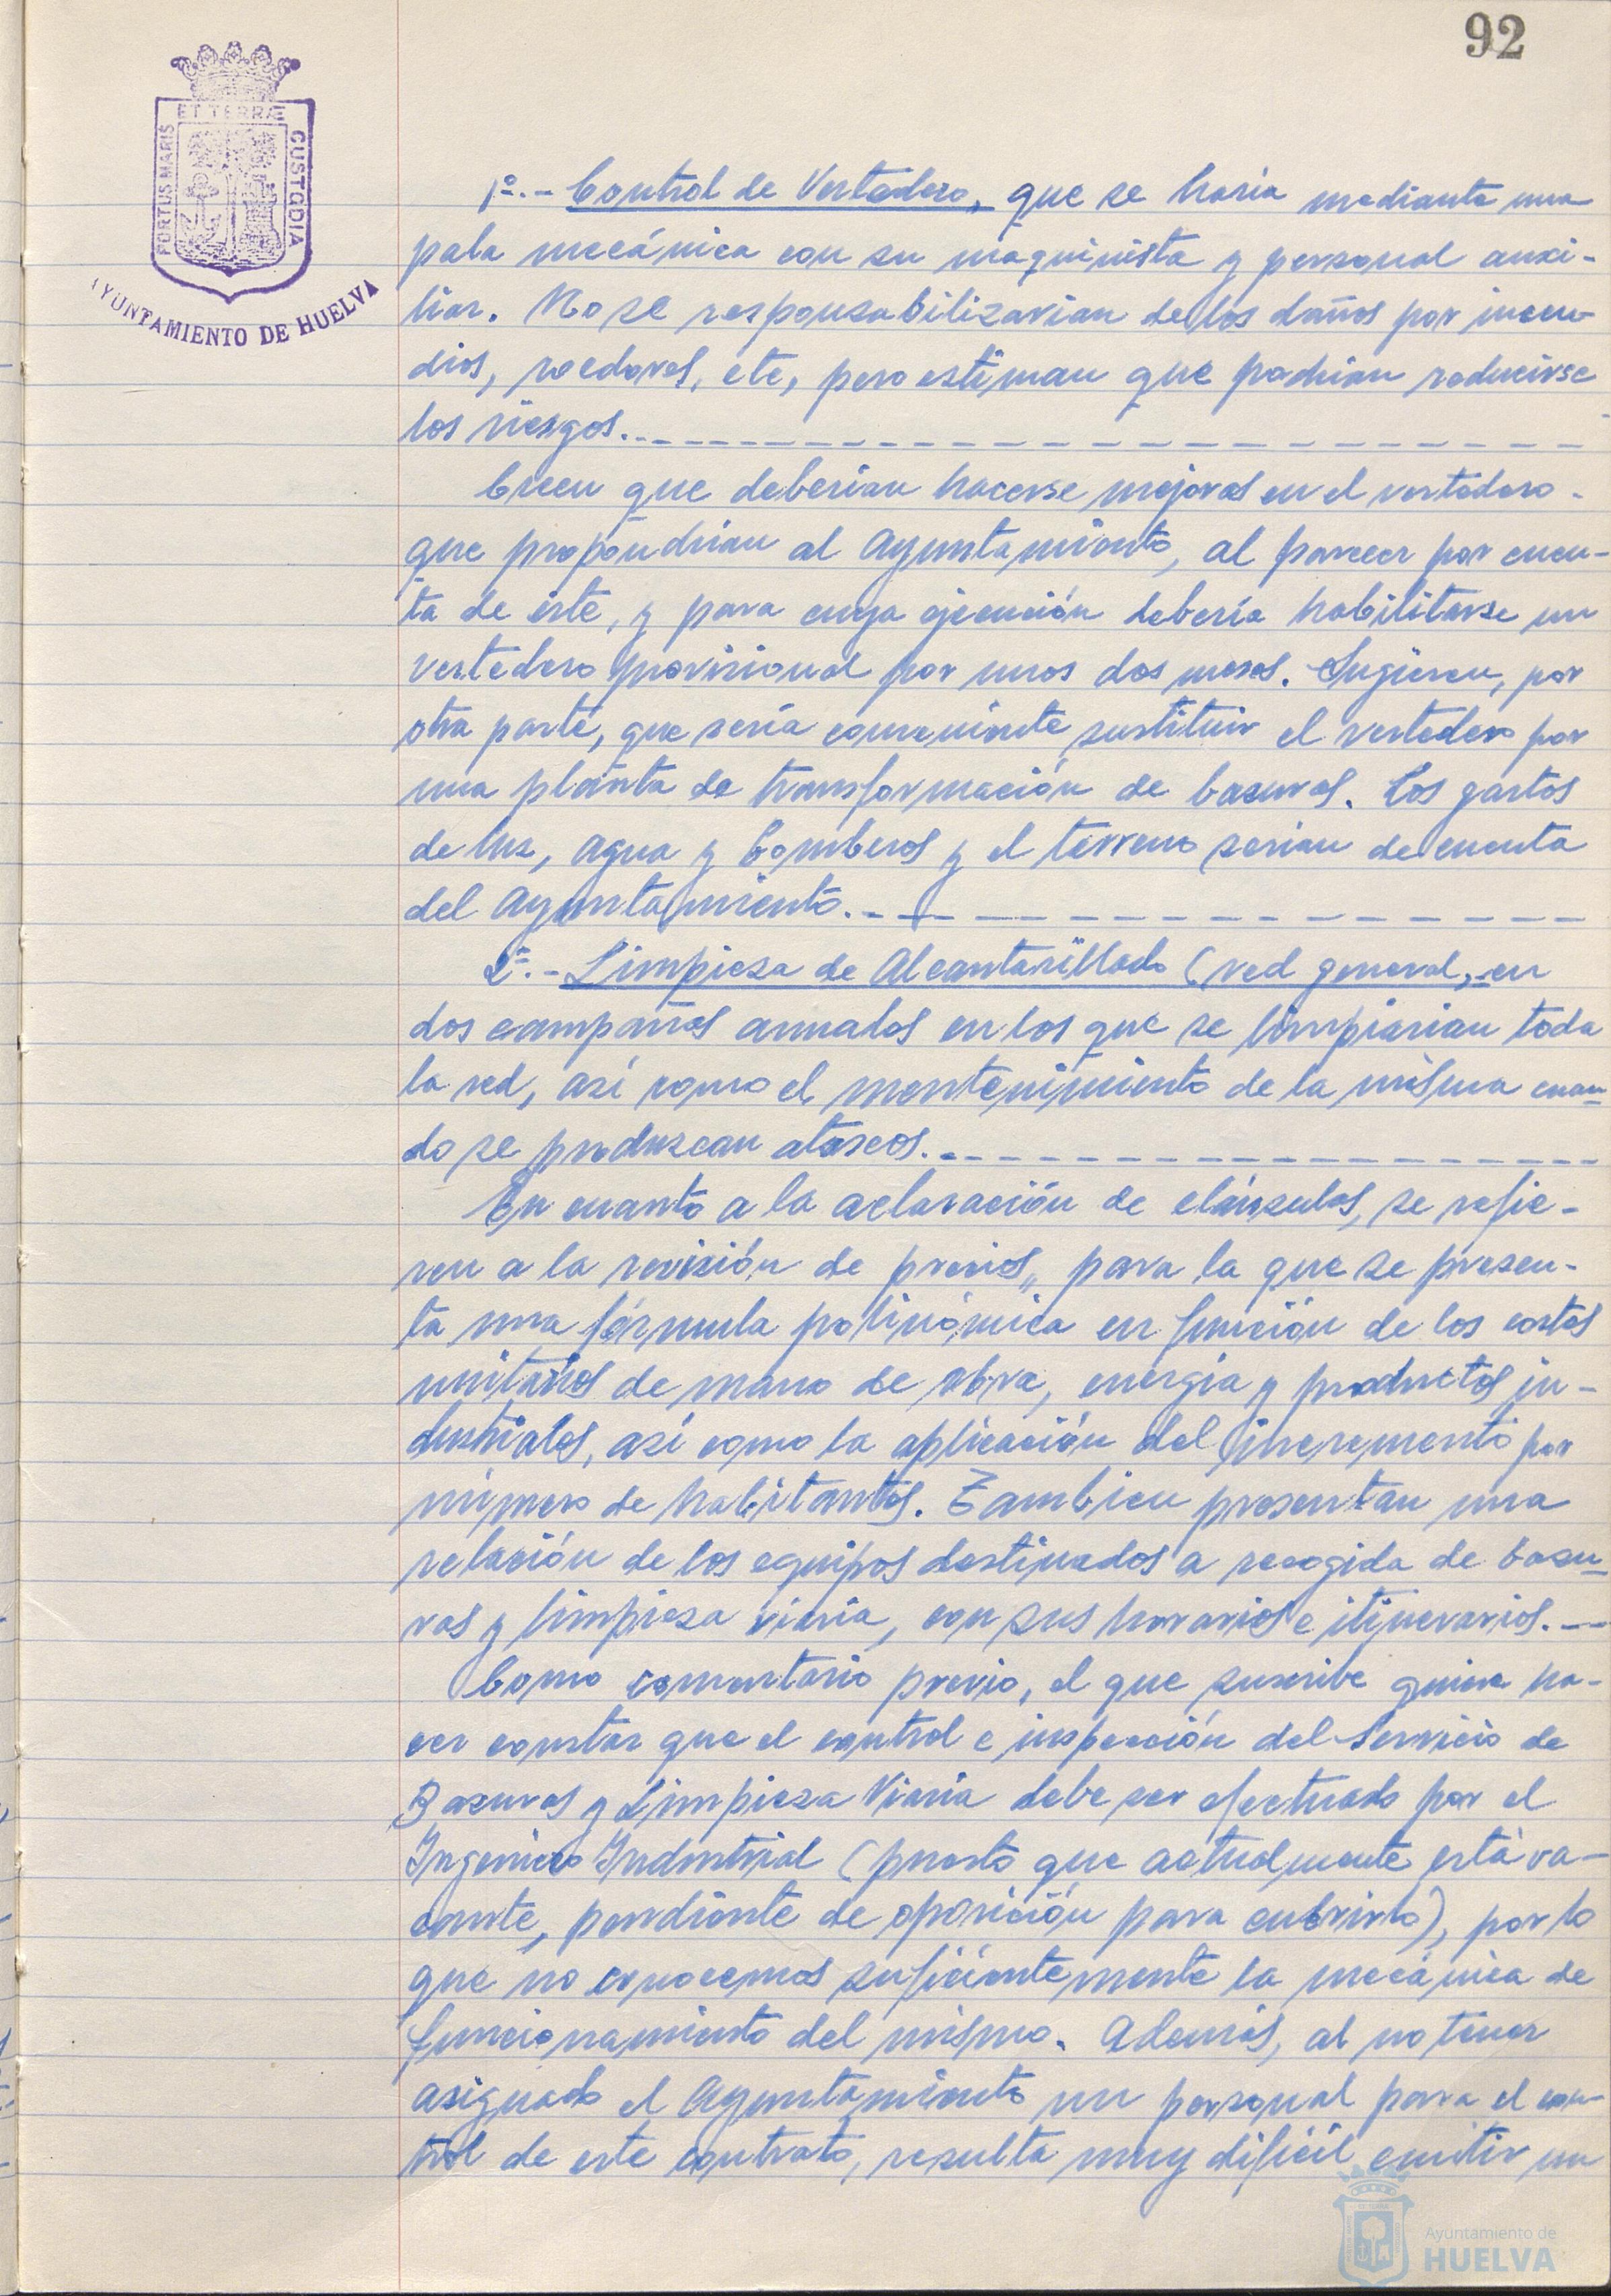 92
ET TERRÆ
PORTUS MARIS
CUSTODIA
AYUNTAMIENTO DE HUELVA
1º.- Control de Vertedero, que se haria mediante una
pala mecánica con su maquinista y personal auxi-
liar. No se responsabilizarian de los daños por incen-
dios, roedores, etc, pero estiman que podrian reducirse
los riesgos.
Creen que deberian hacerse mejoras en el vertedero
que propondrian al Ayuntamiento, al parecer por cuen-
ta de este, y para cuya ejecución debería habilitarse un
vertedero provisional por unos dos meses. Sugieren, por
otra parte, que sería conveniente sustituir el vertedero por
una planta de transformación de basuras. Los gastos
de luz, agua y bomberos y el terreno serian de cuenta
del Ayuntamiento.
2º.- Limpieza de Alcantarillado (red general, en
dos campañas anuales en los que se limpiarian toda
la red, así como el mantenimiento de la misma cuan-
do se produzcan atascos.
En cuanto a la aclaración de cláusulas, se refie-
ren a la revisión de precios, para la que se presen-
ta una fórmula polinómica en función de los costes
unitarios de mano de obra, energia y productos in-
dustriales, así como la aplicación del incremento por
número de habitantes. Tambien presentan una
relación de los equipos destinados a recogida de basu-
ras y limpieza viaria, con sus horarios e itinerarios.
Como comentario previo, el que suscribe quiere ha-
cer constar que el control e inspección del Servicio de
Basuras y Limpieza Viaria debe ser efectuado por el
Ingeniero Industrial (puesto que actualmente está va-
cante, pendiente de oposición para cubrirlo), por lo
que no conocemos suficientemente la mecánica de
funcionamiento del mismo. Además, al no tener
asignado el Ayuntamiento un personal para el con-
trol de este contrato, resulta muy dificil emitir un
Ayuntamiento de
HUELVA